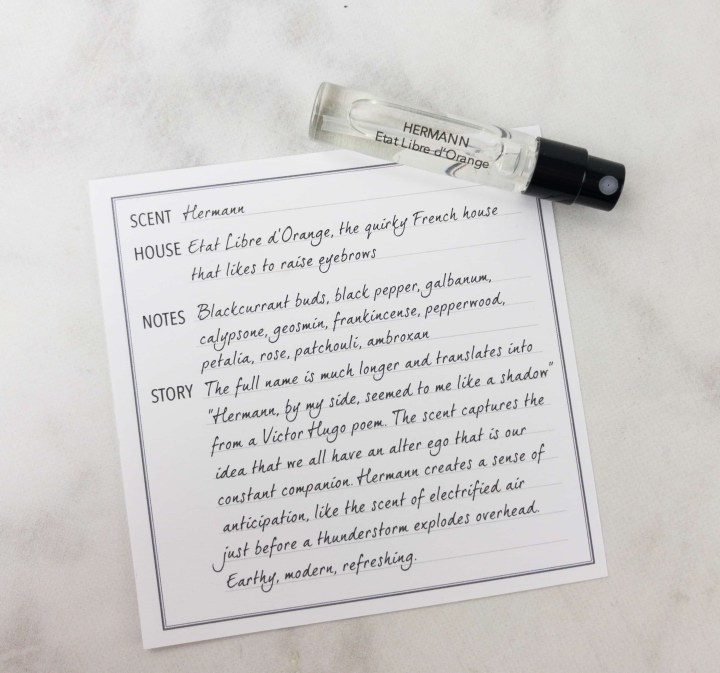 HERMANN
Etat Libre d'Orange
SCENT Hermann
HOUSE Etat Libre d'Orange, the quirky French house
that likes to raise eyebrows
NOTES Blackcurrant buds, black pepper, galbanum,
calypsone, geosmin, frankincense, pepperwood,
petalia, rose, patchouli, ambroxan
STORY The full name is much longer and translates into
"Hermann, by my side, seemed to me like a shadow"
from a Victor Hugo poem. The scent captures the
idea that we all have an alter ego that is our
constant companion. Hermann creates a sense of
anticipation, like the scent of electrified air
just before a thunderstorm explodes overhead.
Earthy, modern, refreshing.